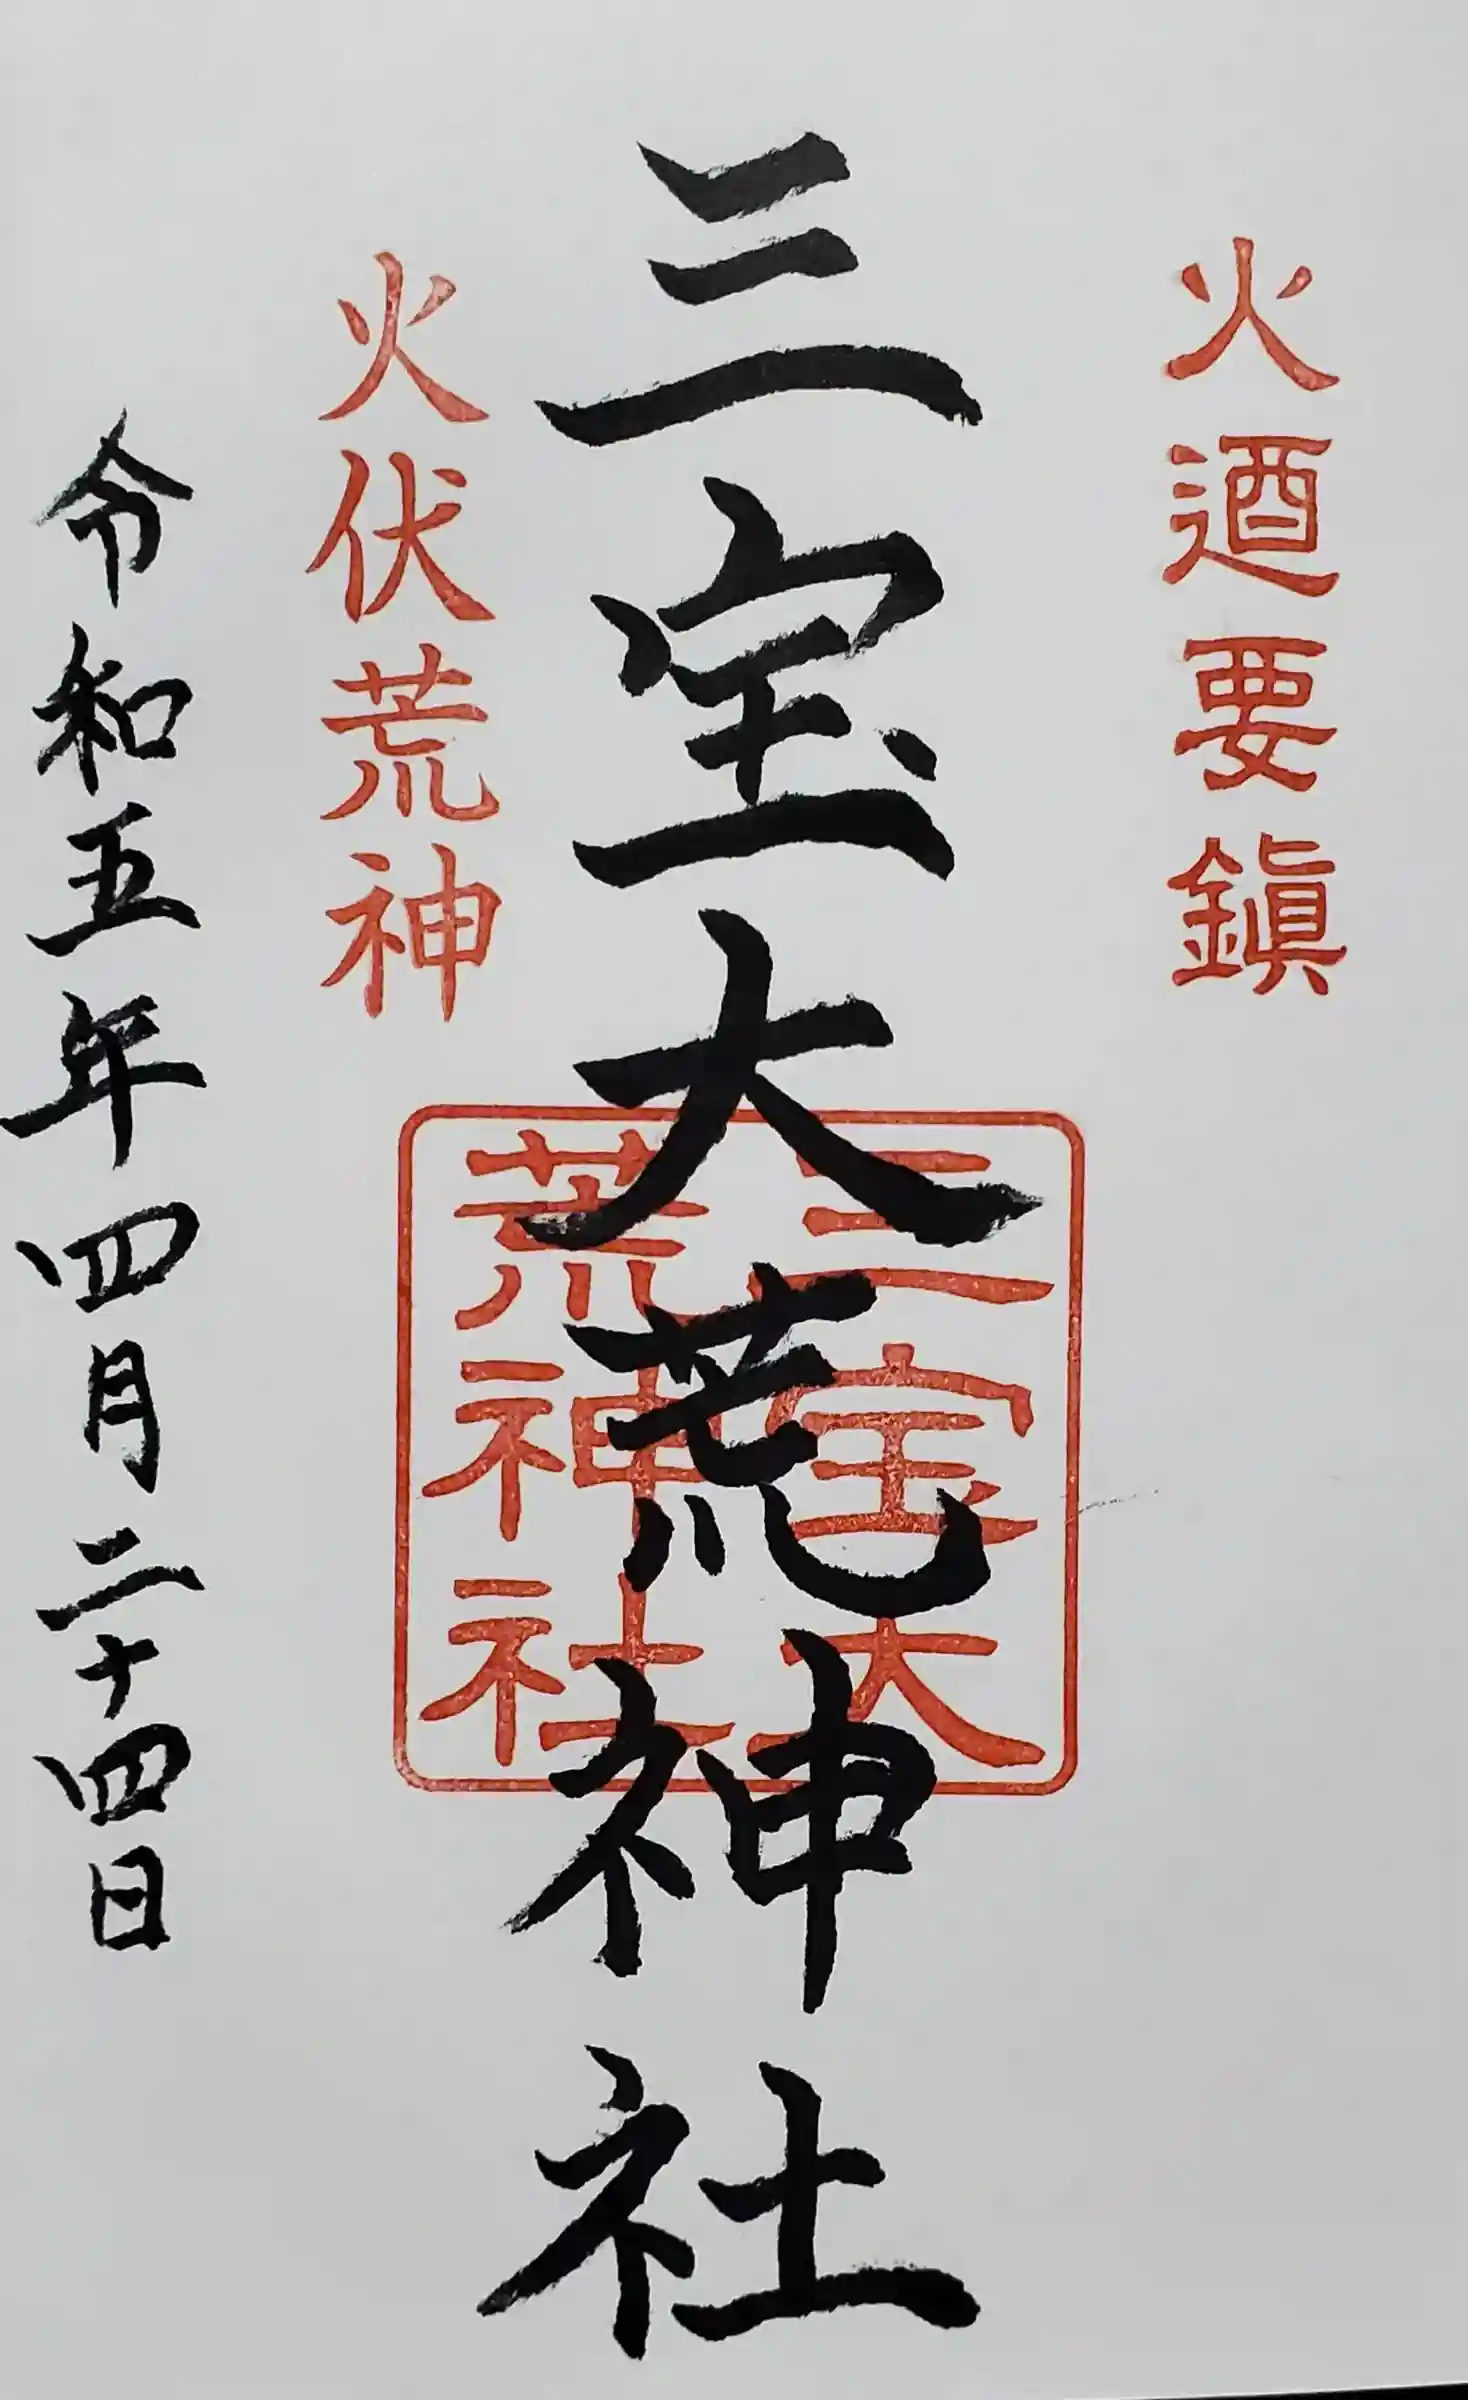 火迺要鎭
三宝大荒神社
三宝大
荒神社
火伏荒神
令和五年四月二十四日